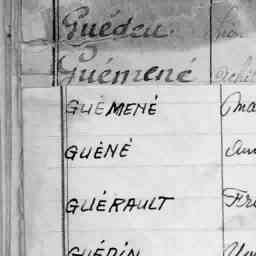 Guédeu
Guémené
GUÉMENÉ Ma
GUÉNÉ
GUÉRAULT Fr
GUÉDIN